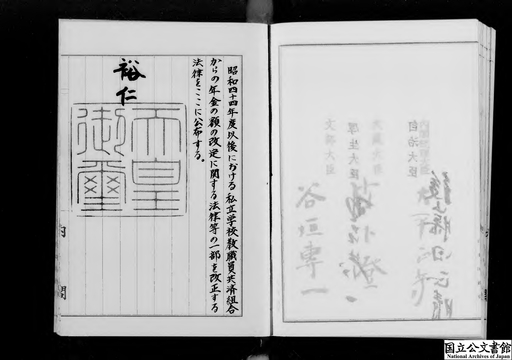 昭和四十四年度以後における私立学校教職員共済組合
からの年金の額の改定に関する法律等の一部を改正する
法律をここに公布する。
裕仁
天皇
御璽
内閣
自治大臣
大蔵大臣
厚生大臣
文部大臣
谷垣専一
国立公文書館
National Archives of Japan